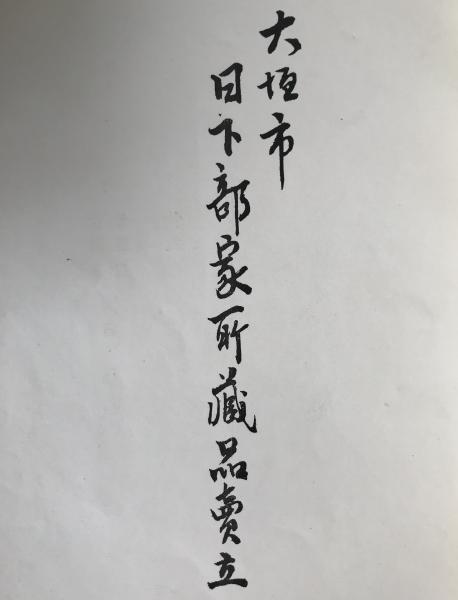 大垣市
日下部家所藏品賣立